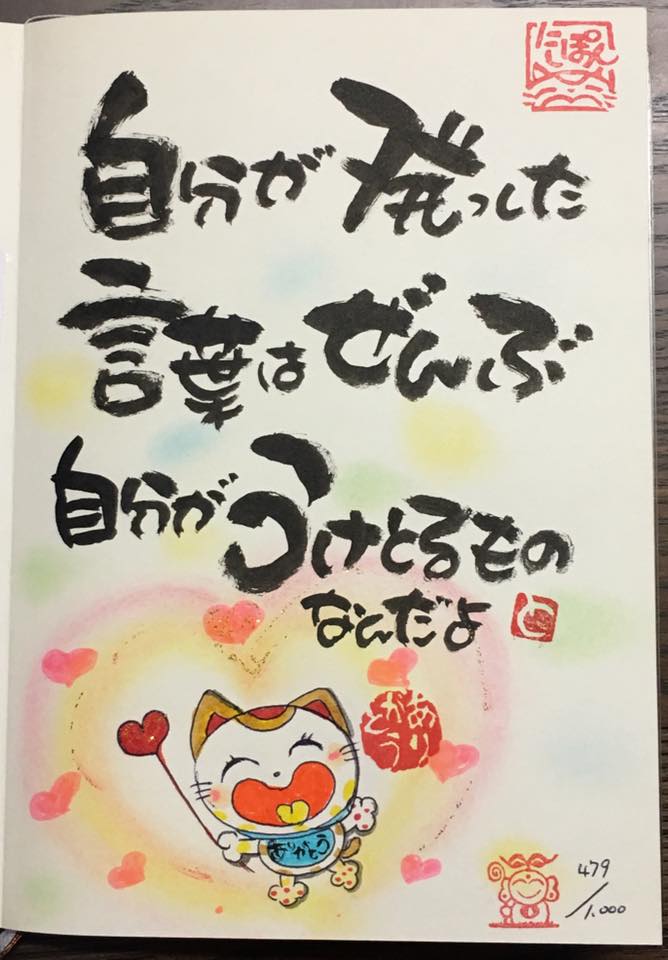 にしぽん
自分が発っした
言葉はぜんぶ
自分がうけとるもの
なんだよ
ありがとう
479/1.000